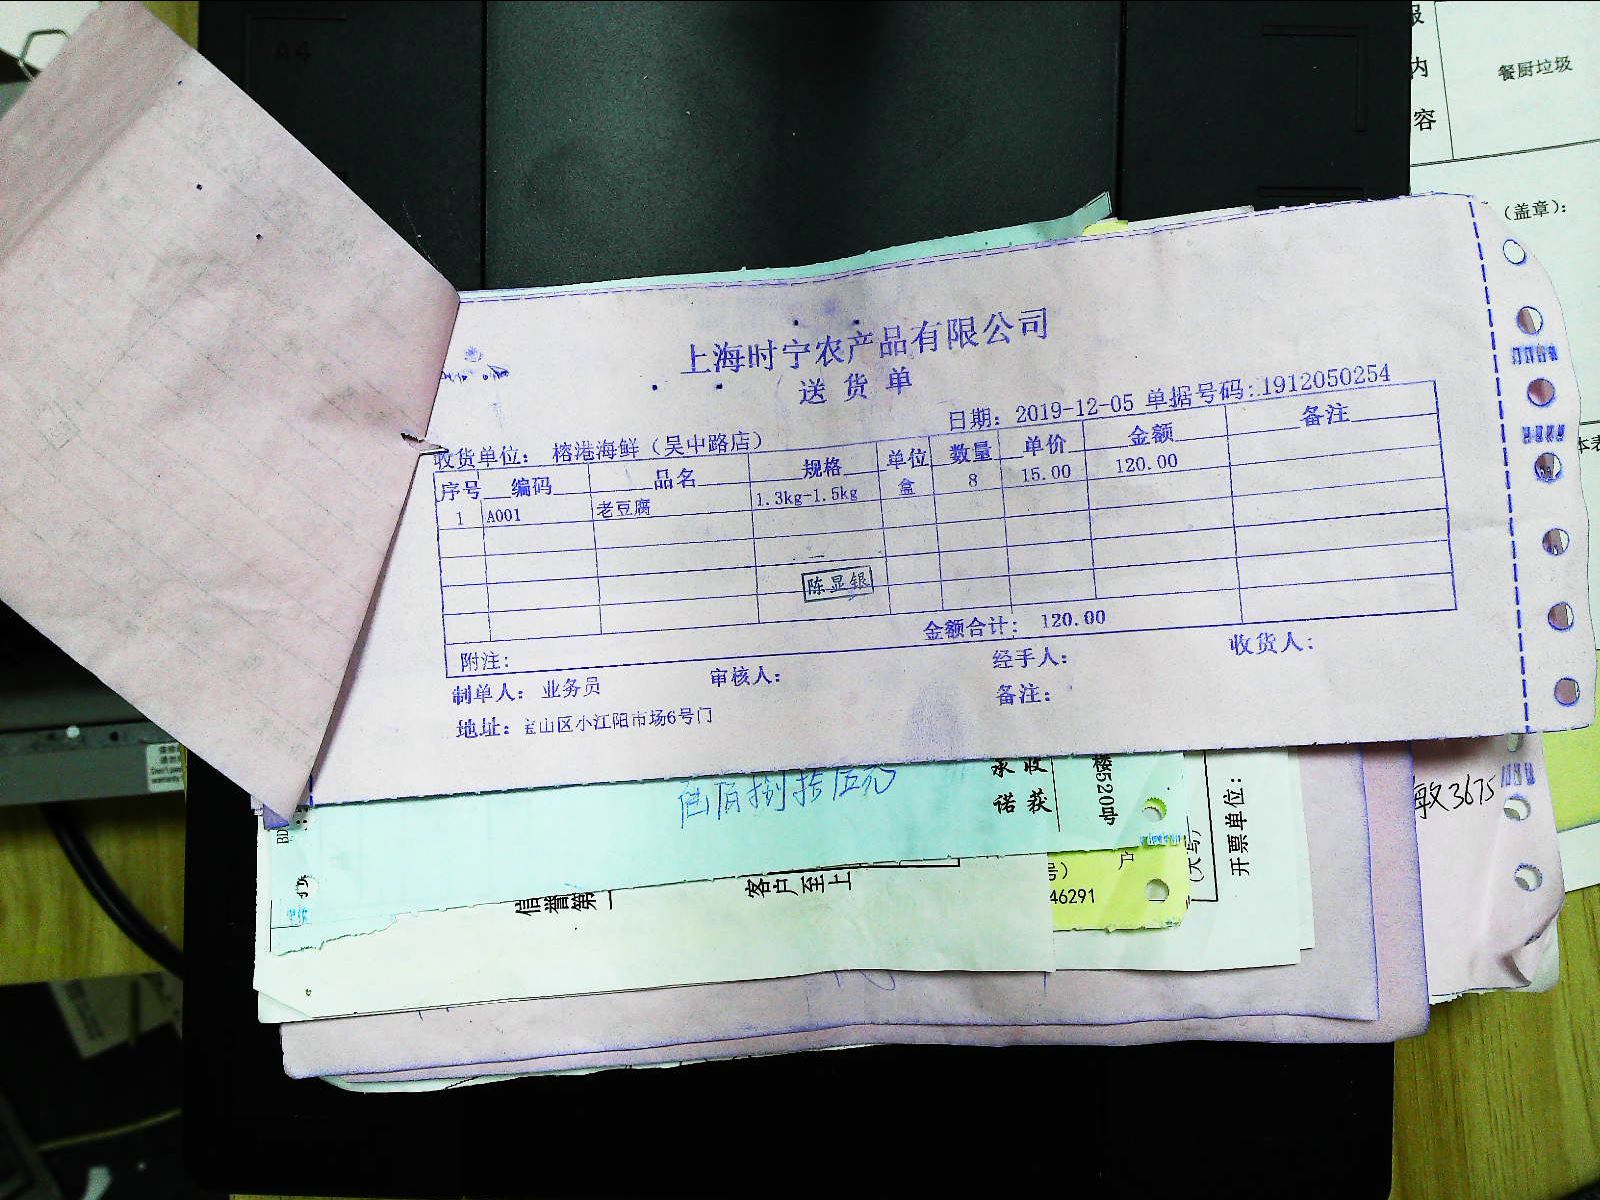 A4
服
内
容
餐厨垃圾
(盖章):
上海时宁农产品有限公司
送货单
日期: 2019-12-05 单据号码:1912050254
收货单位: 榕港海鲜（吴中路店）
序号 编码 品名 规格 单位 数量 单价 金额 备注
1 A001 老豆腐 1.3kg-1.5kg 盒 8 15.00 120.00
陈显银
金额合计: 120.00
附注:
制单人: 业务员 审核人: 经手人: 收货人:
地址: 宝山区小江阳市场6号门 备注:
本表
承 收
诺 获
楼520号
开票单位:
(大写)
敏3675
信誉第一
客户至上
户
号)
46291